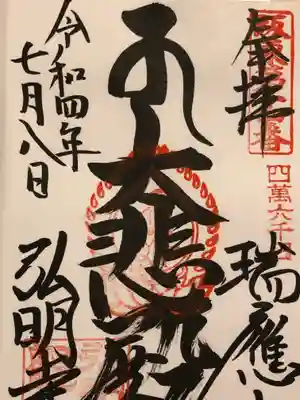 奉拝
四萬六千
瑞應山
大悲殿
令和四年
七月八日
弘明寺